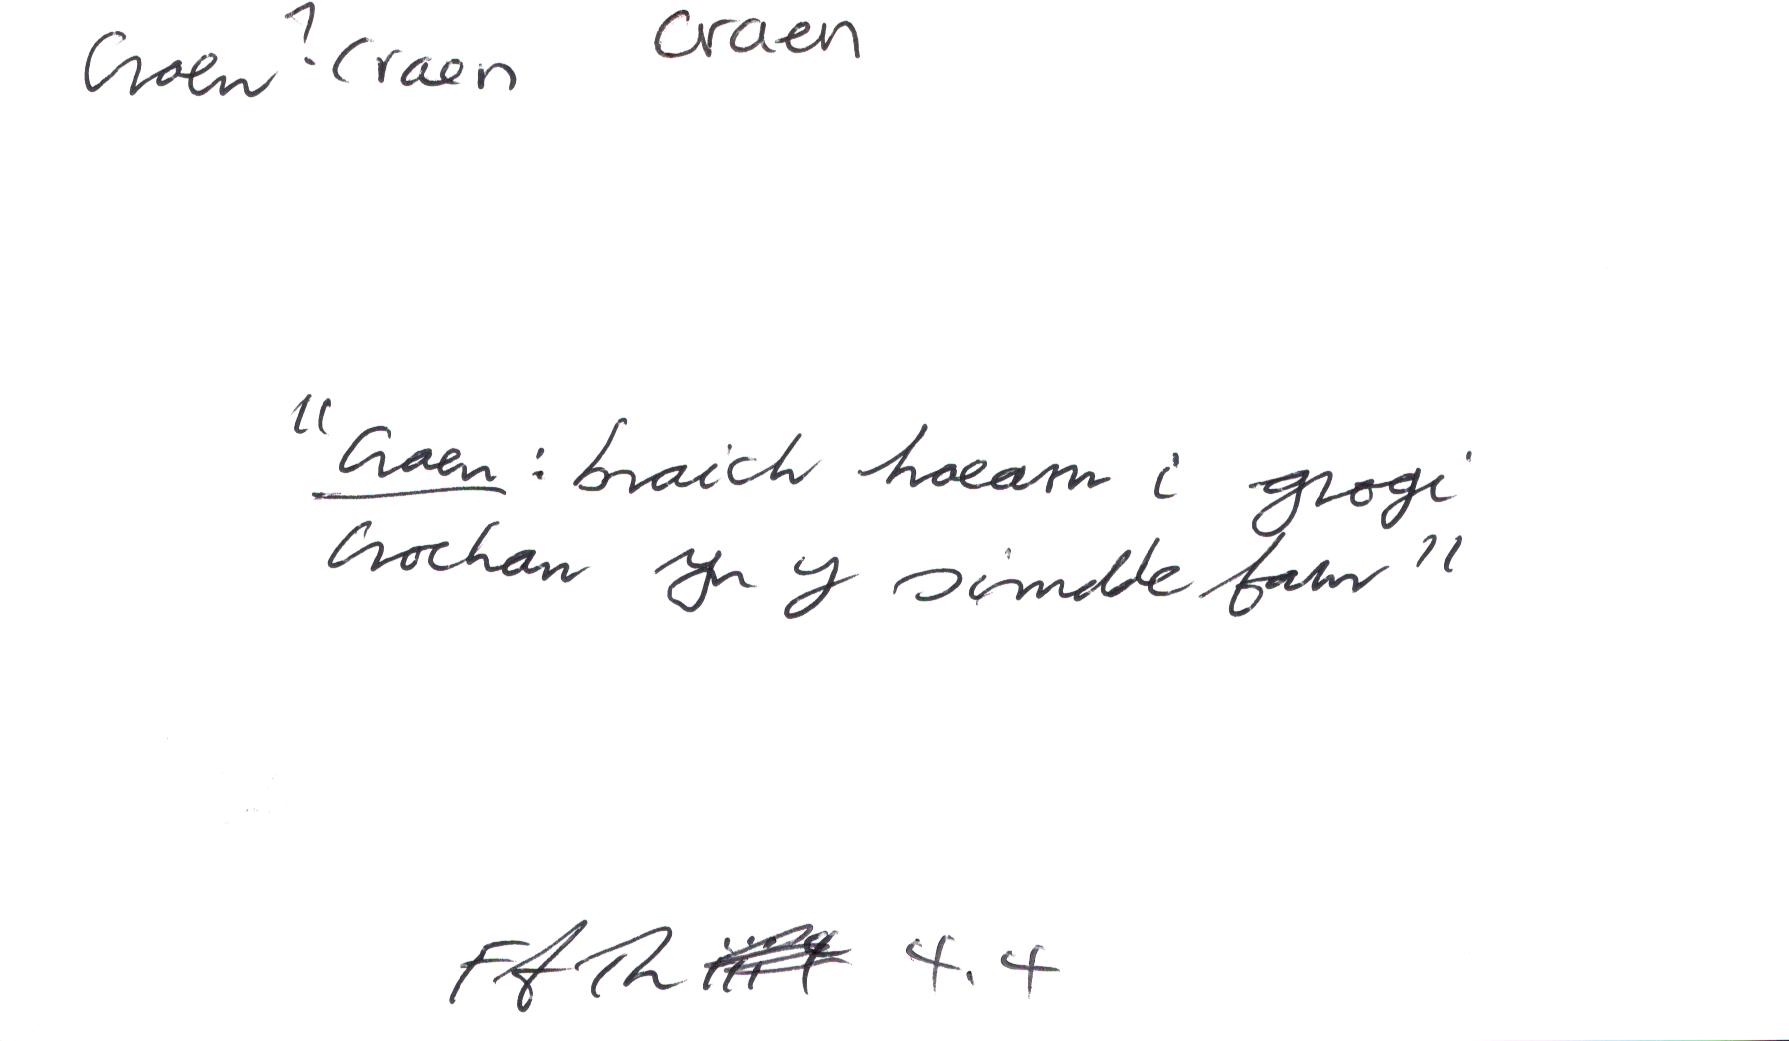 Craen ? Craen craen
"Craen : braich haearn i grogi
crochan yn y simdde fawr"
Ff Th 4.4